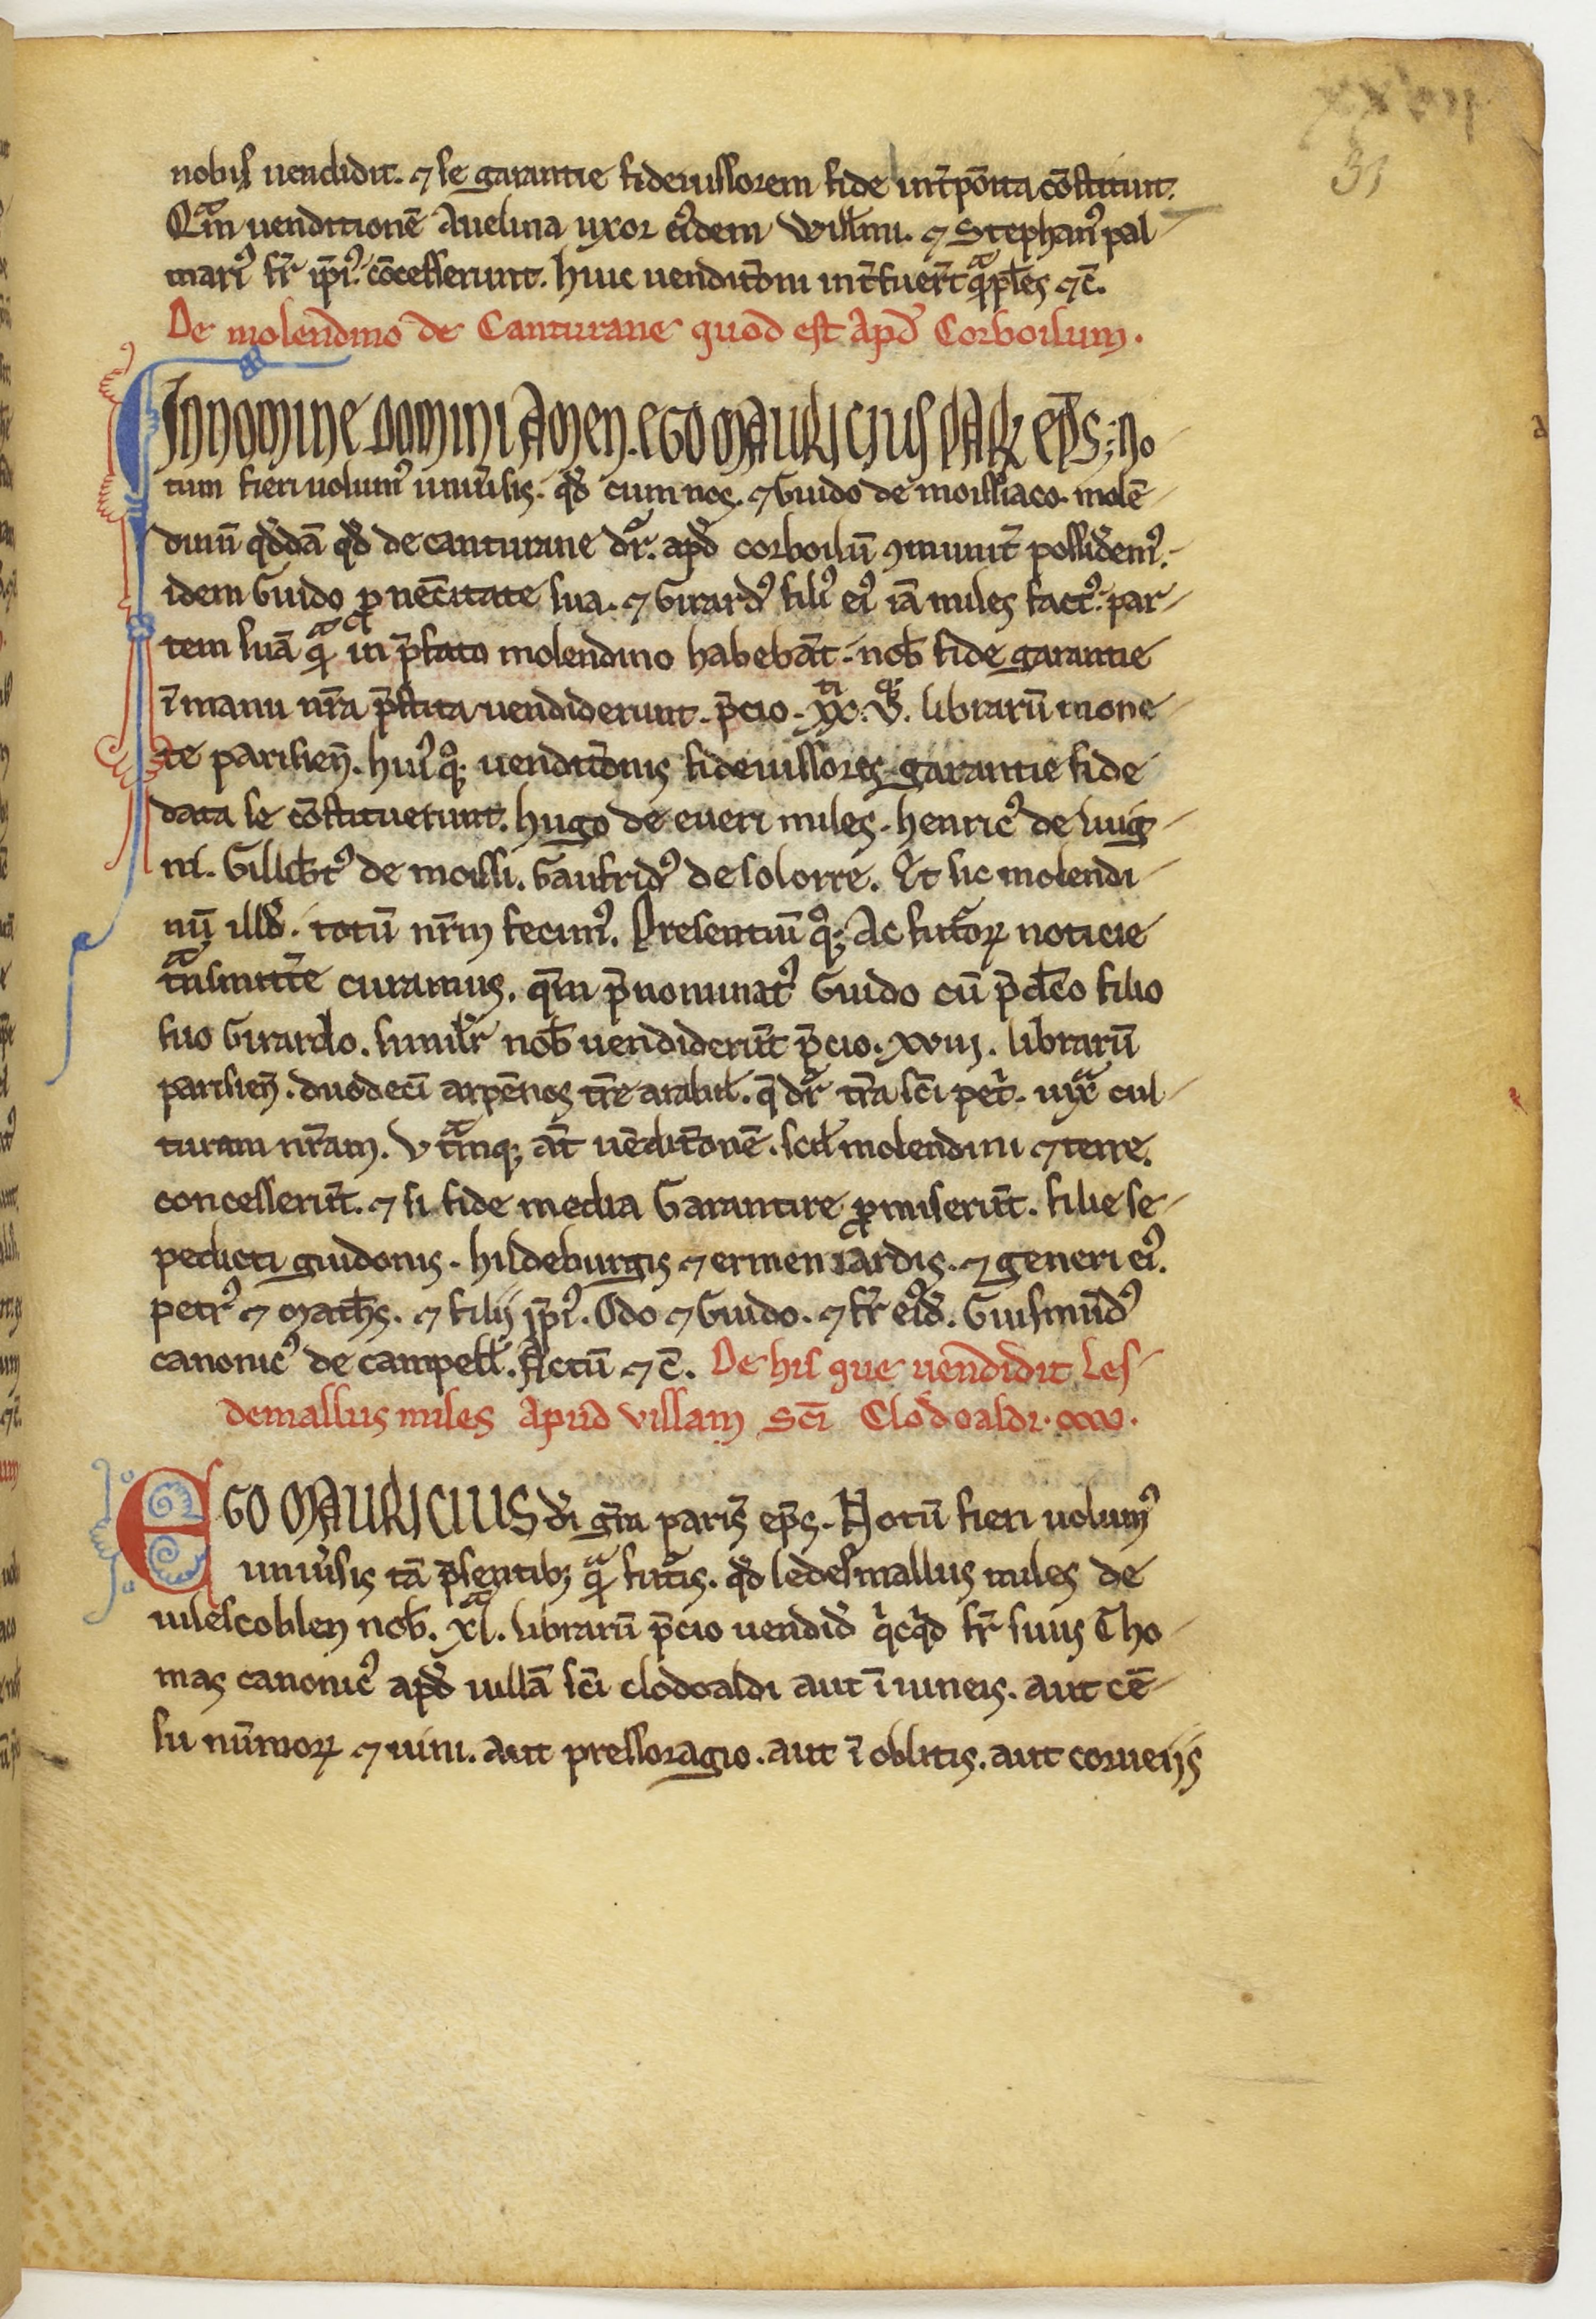 31
nobis uendidit. ⁊ se garantie fideiussorem fide int̄pōita cōstituit.
Qᵃm uenditionē Auelina uxor eiꝰdem Willmi. ⁊ Stephanꝰ pal
mariꝰ fr̄ ip̄iꝰ cōcesserunt. huic uendit̄oni int̄fuer̄t qᵃpl̄es ⁊c̄.
De molendino de Canturane quod est Apd̄ Corboilum.
In nomine domini amen. ego mauricius par̄ ep̄s; No
tum fieri uolumꝰ uniu̾sis. qd̄ cum nos. ⁊ Guido de moissiaco. molē
dinū qd̄dā qd̄ de canturane dr̄. apd̄ corboilū ꝯmunit̄ possidem̾ꝰ.
idem Guido ꝓ necc̄itate sua. ⁊ Girardꝰ filiꝰ eiꝰ iā miles factꝰ. par
tem suā qᵃ in p̄fato molendino habebāt. nob̄ fide garantie
ī manu nr̄a p̄stita uendiderunt. p̄cio. xx.v. librarū mone
te parisien̄. huiꝰqꝫ uendit̄onis fideiussores garantie fide
data se cōstituerunt. hugo de eueri miles. henricꝰ de uig
nl. Gillebt̄ꝰ de moissi. Gaufridꝰ de solorre. Et sic molendi
nū illd̄. totū nr̄m fecimꝰ. Presentiū qꝫ Ac futoꝝ noticie
tᵃnsmitt̄e curamus. qm̄ p̄nominatꝰ Guido cū p̄dc̄o filio
suo Girardo. similr̄ nob̄ uendiderūt p̄cio. xviij. librarū
parisien̄. duodecī arpēnos tr̄re arabil̄. q̄ dr̄ tr̄ra sc̄i petⁱ. iuxᵃ cul
turam nr̄am. Vtᵃmqꝫ āt uēdit̄onē. scil̄ molendini ⁊ terre.
concesserūt. ⁊ si fide media Garantire ꝓmiserūt. filie se
pedicti guidonis. hildeburgis ⁊ ermeniardis. ⁊ generi eiꝰ.
petrꝰ ⁊ math̄s. ⁊ filij ip̄iꝰ. Odo ⁊ Guido. ⁊ fr̄ eiꝰd̄. Guismūdꝰ
canonicꝰ de campell̄. Actū ⁊c̄. De his que uendidit Les
demallus miles Apud villam Sc̄i Clodoaldi. xxv.
EGO MAURICIUS dī gr̄a paris̄ ep̄s. Notū fieri uolumꝰ
uniu̾sis tā p̄sentibꝫ qᵃ futᵃis. qd̄ ledesmallus miles de
uilescoblen nob̄. xl. librarū p̄cio uendid̄ qⁱcqⁱd fr̄ suus Tho
mas canonicꝰ apd̄ uillā sc̄i clodoaldi aut ī uineis. aut cē
su nūmoꝝ ⁊ uini. aut pressoragio. aut ī oblitis. aut corueijs